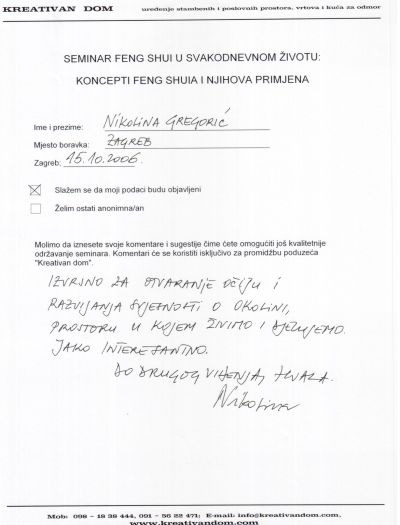 KREATIVAN DOM uređenje stambenih i poslovnih prostora, vrtova i kuća za odmor
SEMINAR FENG SHUI U SVAKODNEVNOM ŽIVOTU:
KONCEPTI FENG SHUIA I NJIHOVA PRIMJENA
Ime i prezime: NIKOLINA GREGORIĆ
Mjesto boravka: ZAGREB
Zagreb: 15.10.2006.
Slažem se da moji podaci budu objavljeni
Želim ostati anonimna/an
Molimo da iznesete svoje komentare i sugestije čime ćete omogućiti još kvalitetnije
održavanje seminara. Komentari će se koristiti isključivo za promidžbu poduzeća
"Kreativan dom".
IZVRSNO ZA OTVARANJE OČIJU I
RAZVIJANJA SVJESNOSTI O OKOLINI,
PROSTORU U KOJEM ŽIVIMO I DJELUJEMO.
JAKO INTERESANTNO.
DO DRUGOG VIĐENJA, HVALA.
Nikolina
Mob: 098 - 18 39 444, 091 - 56 22 471; E-mail: info@kreativandom.com
www.kreativandom.com